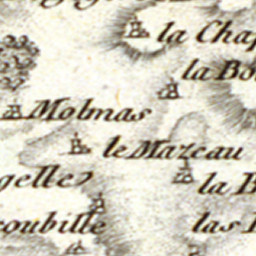 la Chap
la Bo
Molmas
le Mazeau
gelle
la B
coubille
las